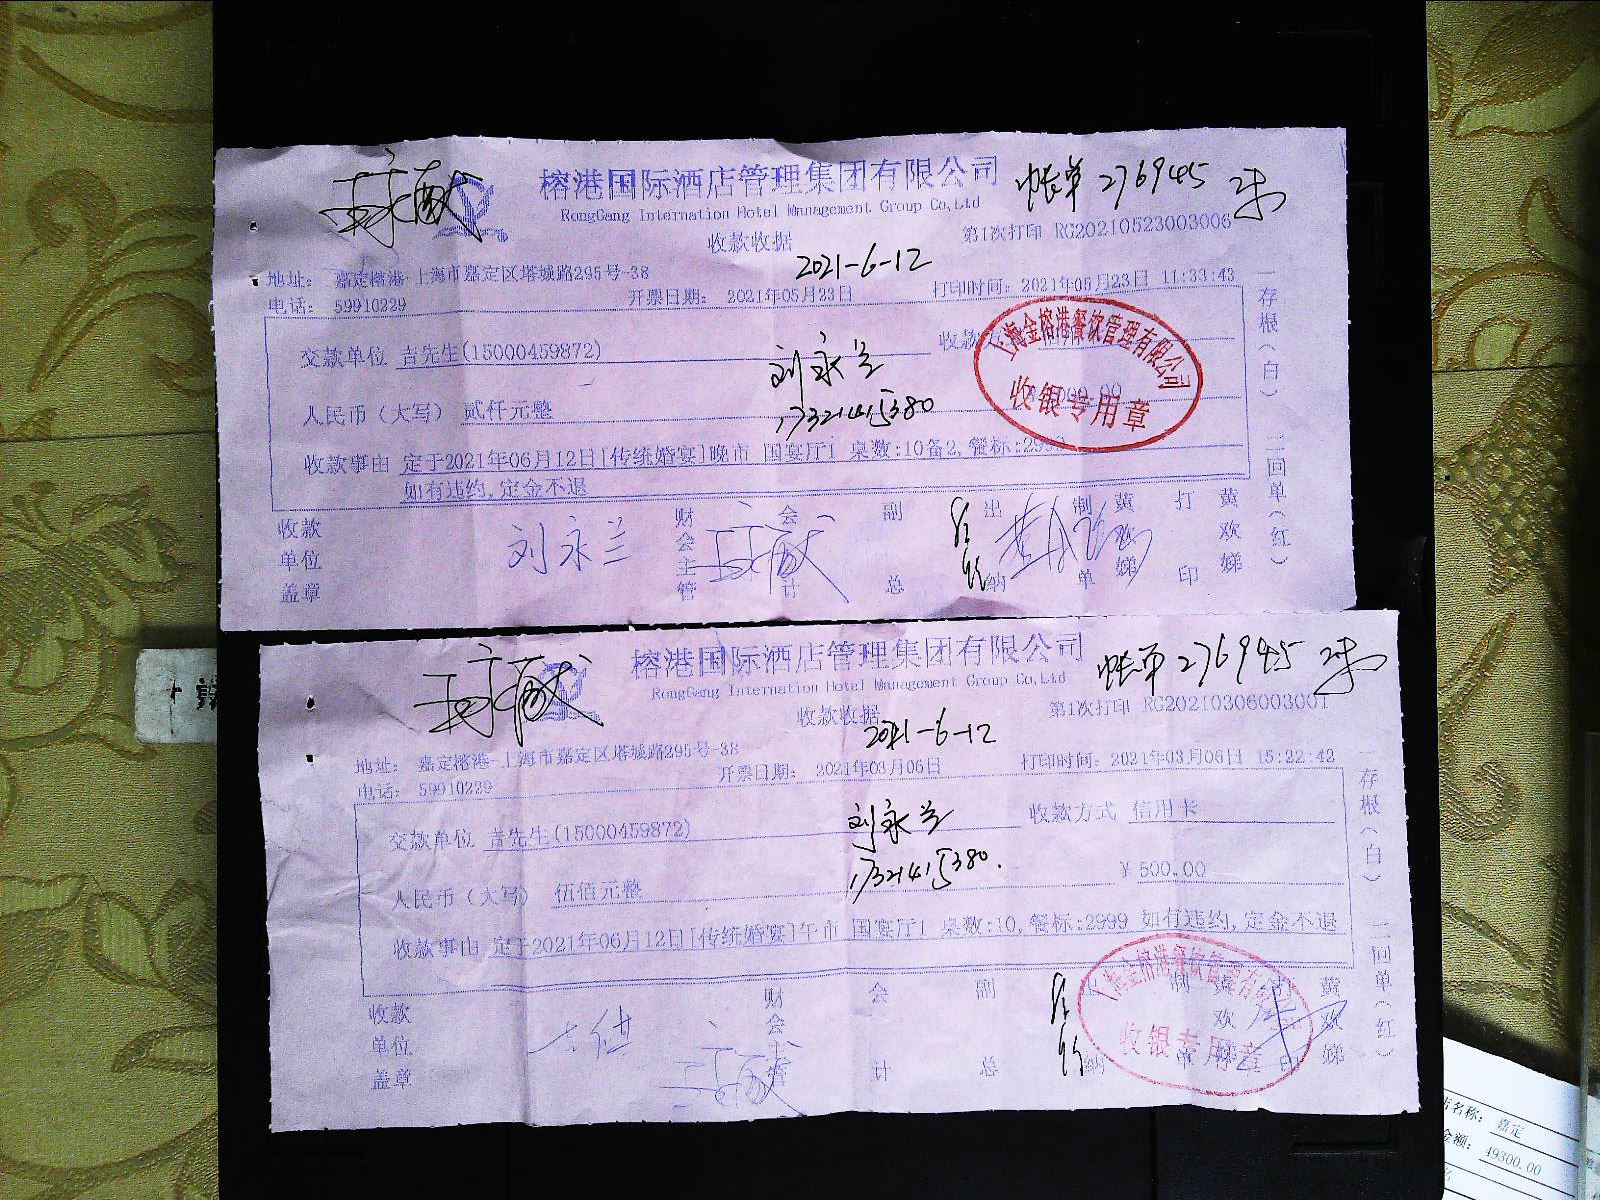 榕港国际酒店管理集团有限公司
帐单 276945
RongGang Internation Hotel Management Group Co,Ltd
收款收据
第1次打印 RG20210523003006
2021-6-12
地址： 嘉定榕港-上海市嘉定区塔城路295号-3B
电话： 59910229
开票日期： 2021年05月23日
打印时间：2021年05月23日 11:33:43
交款单位 吉先生(15000459872)
刘永兰
收款
人民币（大写） 贰仟元整
17321415380
上海金榕港餐饮管理有限公司
收银专用章
收款事由 定于2021年06月12日[传统婚宴]晚市 国宴厅1 桌数:10备2,餐标:2999
如有违约,定金不退
收款单位盖章
刘永兰
财会主管
会计
副总
出纳
制单
黄欢娣
打印
黄欢娣
一存根（白） 二回单（红）
榕港国际酒店管理集团有限公司
帐单 276945
RongGang Internation Hotel Management Group Co,Ltd
收款收据
第1次打印 RG20210306003001
2021-6-12
地址： 嘉定榕港-上海市嘉定区塔城路295号-3B
电话： 59910229
开票日期： 2021年03月06日
打印时间：2021年03月06日 15:22:42
交款单位 吉先生(15000459872)
刘永兰
收款方式 信用卡
人民币（大写） 伍佰元整
17321415380.
￥500.00
收款事由 定于2021年06月12日[传统婚宴]午市 国宴厅1 桌数:10,餐标:2999 如有违约,定金不退
收款单位盖章
财会主管
会计
副总
上海金榕港餐饮管理有限公司
收银专用章
黄欢娣
一存根（白） 二回单（红）
店名称： 嘉定
金额： 49300.00